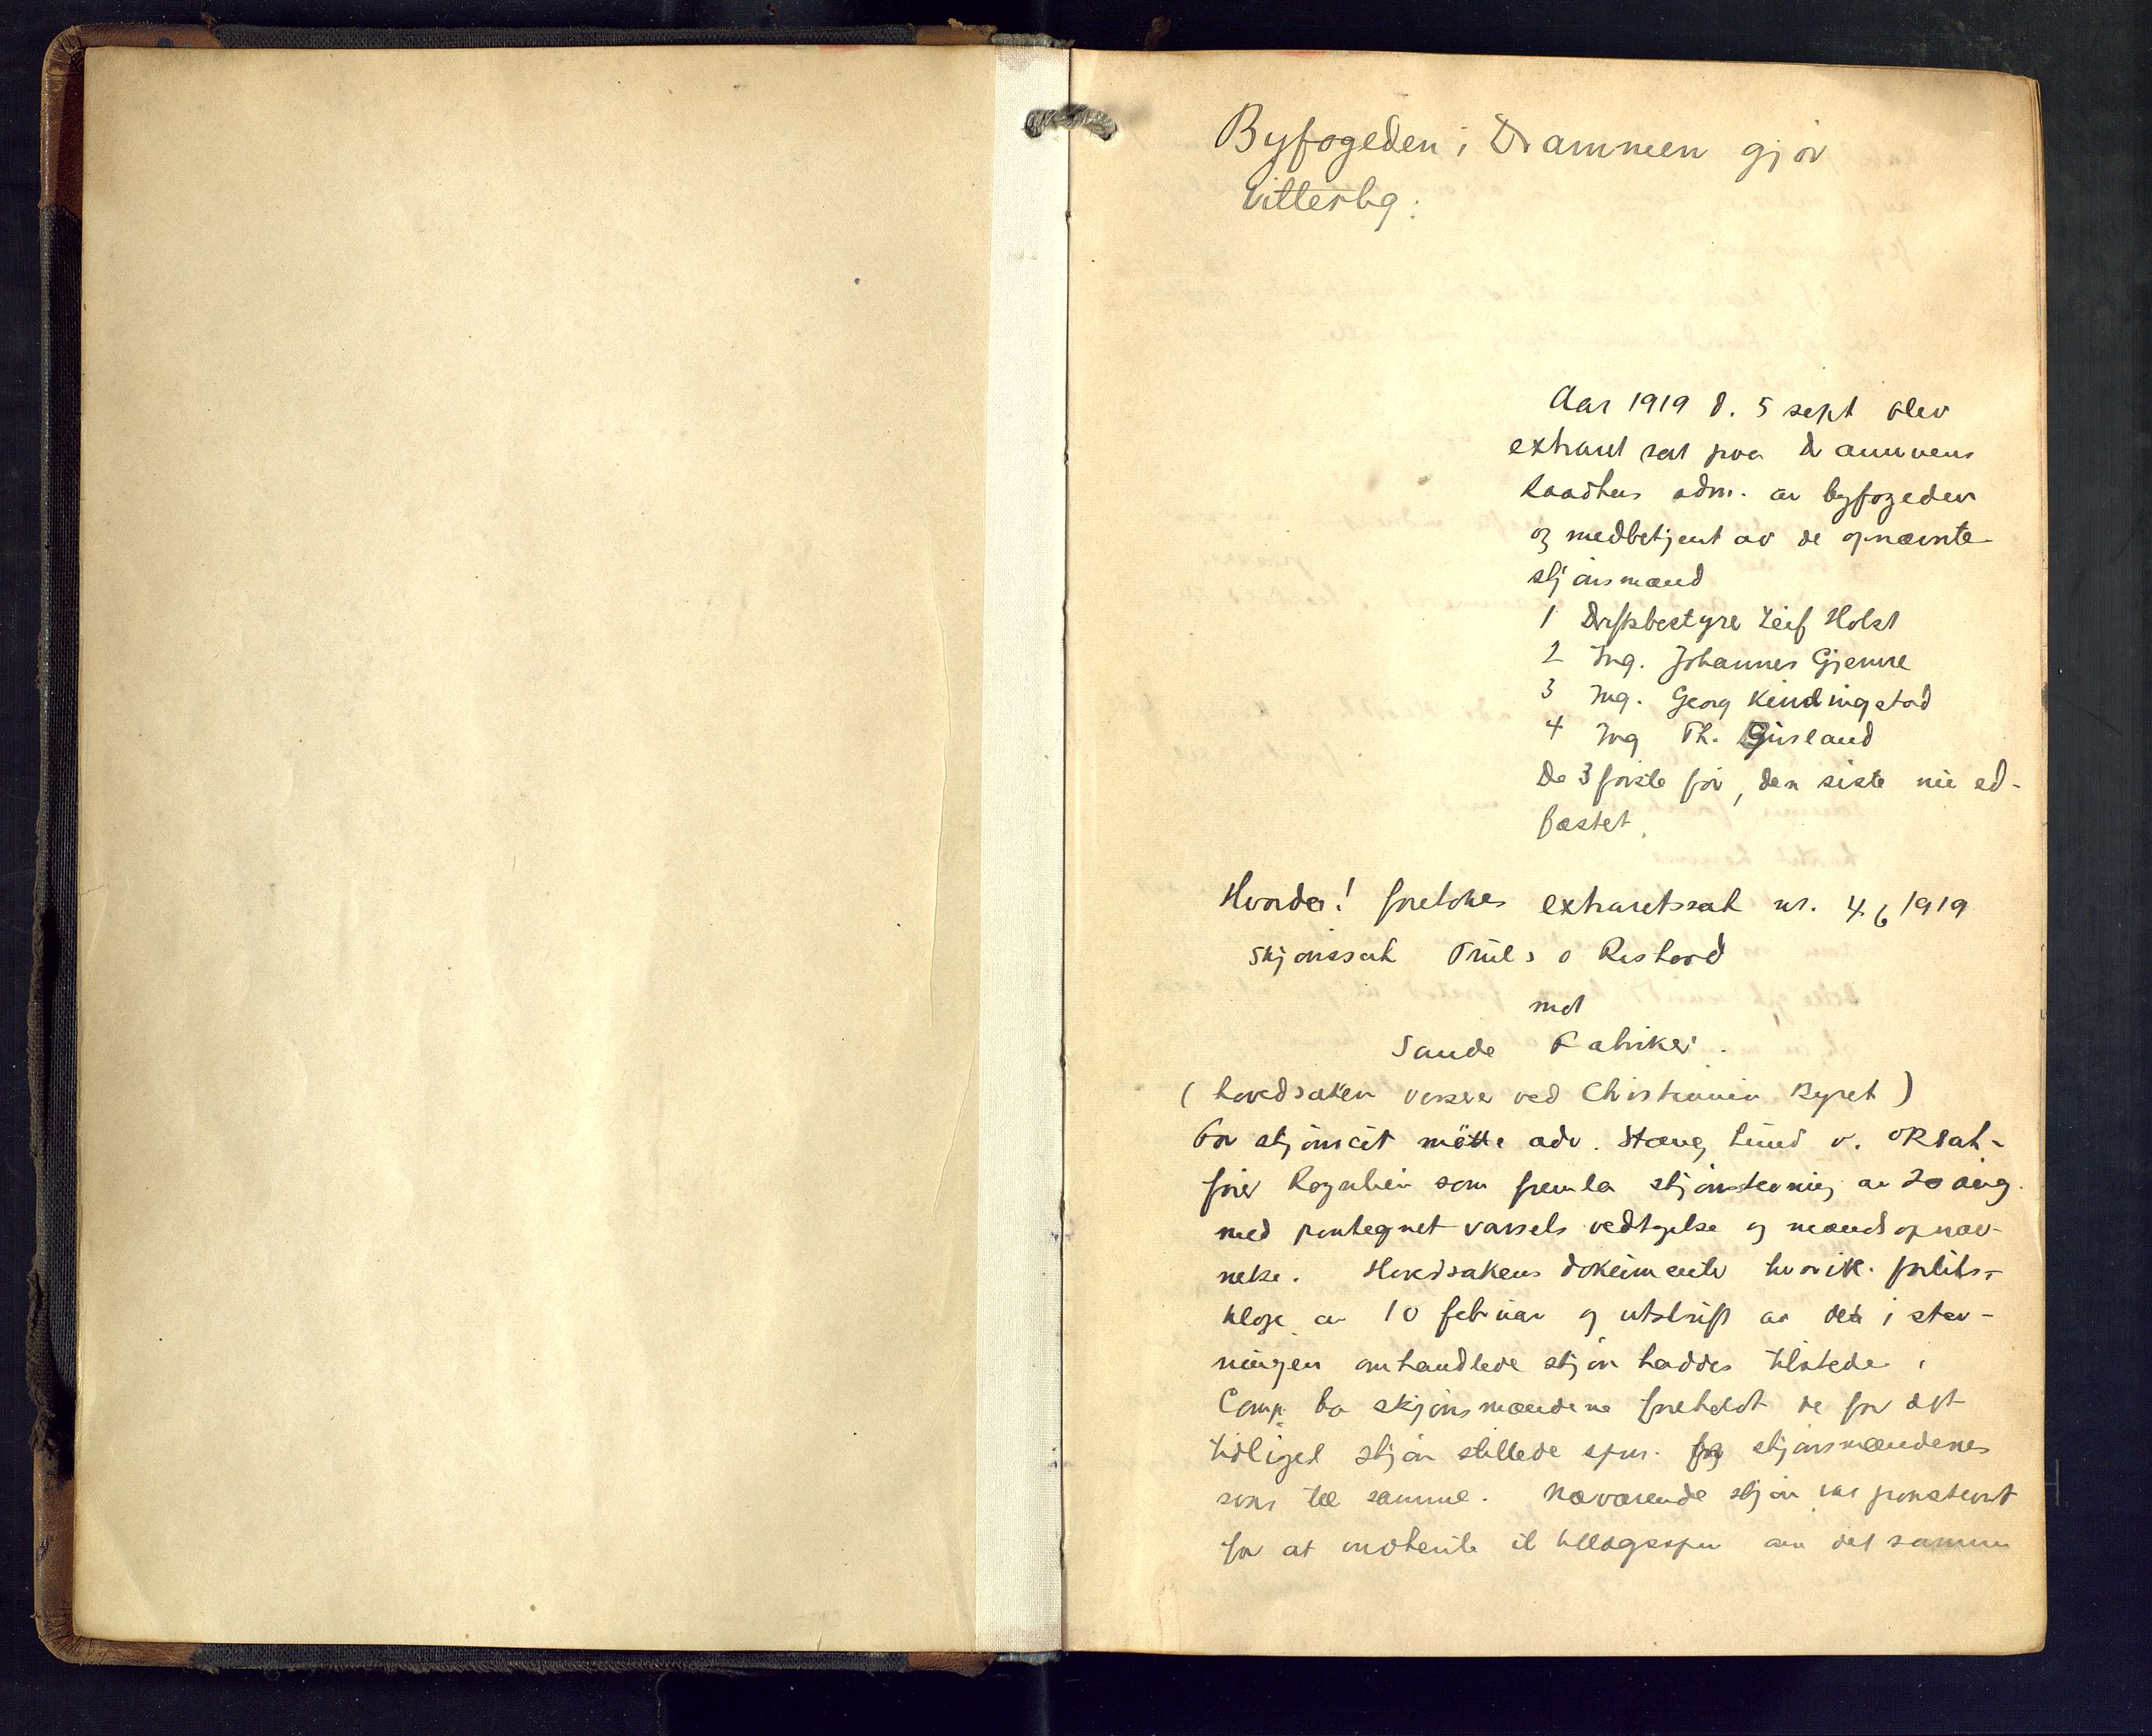 Byfogeden i Drammen gjør
vitterlig:
Aar 1919 d. 5 sept blev
extraret sat paa Drammens
Raadhus adm. av byfogeden
og medbetjent av de opnævnte
skjønsmænd
1 Driftsbestyrer Leif Holst
2 Ing. Johannes Gjemre
3 Ing. Georg Kindingstad
4 Ing Th.
De 3 første før, den siste nu ed-
fæstet.
Hvorda! foretokes extraretssak nr. 46/1919
Skjønssak Truls o Restoord
mot
Sande Fabriker.
(hovedsaken verserer ved Christiania Byret)
For skjønscit møtte adv. Stang Lund v. ORsak-
fører som fremla skjønstevning av 20 aug.
med paategnet varsels vedtagelse og mændsopnæv-
nelse. Hovedsakens dokumenter hvorik. forliks-
klage av 10 februar og utskrift av det i stev-
ningen omhandlede skjøn haddes tilstede.
Comp. ba skjønsmændene foreholdt de for det
tidligere skjøn stillede spm. og skjønsmændenes
svar til samme. Nærværende skjøn var paastevnt
for at et tillægsspm det samme